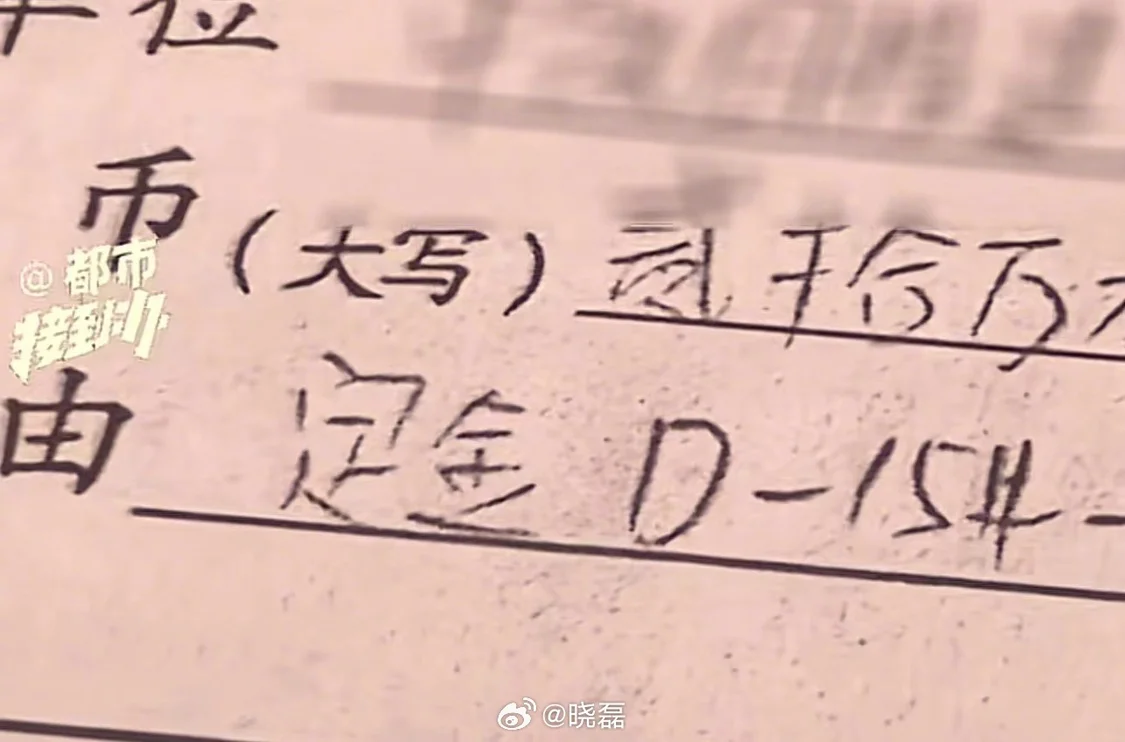 单位
币(大写)贰拾万
@都市
接到办
由 定金 D-15#-
@晓磊